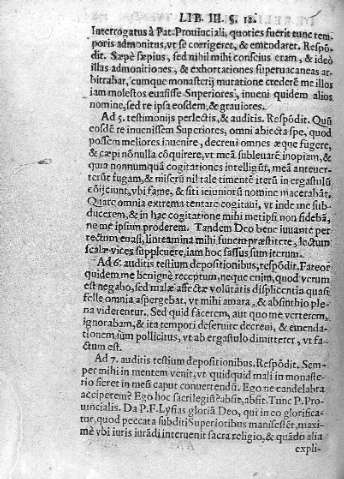 LIB. III. §. 12.
Interrogatus à Pat. Prouinciali, quoties fuerit tunc tem-
poris admonitus, vt se corrigeret, & emẽdaret. Respõ-
dit. Sæpe sæpius, sed nihil mihi conscius eram, & ideò
illas admonitiones, & exhortationes superuacaneas ar-
bitrabar, cumque monasterij mutatione crederẽ me illos
iam molestos euasisse Superiores, inueni quidem alios
nomine, sed re ipsa eosdem, & grauiores.
Ad 5. testimonijs perlectis, & auditis. Respõdit. Quũ
eosdẽ re inuenissem Superiores, omni abiecta spe, quod
possem meliores inuenire, decreui omnes æque fugere,
& cæpi nõ nulla cõquirere, vt meã subleuarẽ inopiam, &
quia nonnumquã cogitationes intelligũt, meã anteuer-
terũt fugam, & miserũ nil tale timentẽ iterũ in ergastulũ
cõijciunt, vbi fame, & siti ieiuniorũ nomine macerabar.
Quare omnia extrema tentare cogitaui, vt inde me sub-
ducerem, & in hac cogitatione mihi metipsi non fidebã,
ne me ipsum proderem. Tandem Deo bene iuuante per-
rectum euasi, linteamina mihi funem præstitere, lectum
scalæ vices suppleuere, iam hoc fassus sum iterum.
Ad 6. auditis testium depositionibus, respõdit. Fateor
quidem me benignè receptum, neque enim, quod verum
est negabo, sed malæ affectæ volũtatis displicentia quasi
felle omnia aspergebat, vt mihi amara, & absinthio ple-
na viderentur. Sed quid facerem, aut quo me verterem,
ignorabam, & ita tempori deseruire decreui, & emenda-
tionem, ium pollicitus, vt ab ergastulo dimitterer, vt fa-
ctum est.
Ad 7. auditis testium depositionibus. Respõdit. Sem-
per mihi in mentem venit, vt quidquid mali in monaste-
rio fieret in meũ caput conuertendũ. Ego ne candelabra
acciperem? Ego hoc sacrilegiũ? absit, absit. Tunc P. Pro-
uincialis. Da P. F. Lysias gloriã Deo, qui in eo glorifica-
tur, quod peccata subditi Superioribus manifestet, maxi-
mè vbi iuris iurãdi interuenit sacra religio, & quãdo alia
expli-